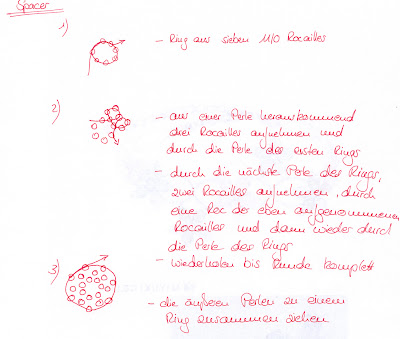 Spacer
1)
- Ring aus sieben 11/0 Rocailles
2)
- aus einer Perle herauskommend
drei Rocailles aufnehmen und
durch die Perle des ersten Rings
- durch die nächste Perle des Rings,
zwei Rocailles aufnehmen, durch
eine Roc der eben aufgenommenen
Rocailles und dann wieder durch
die Perle des Rings
- wiederholen bis Runde komplett
3)
- die äußeren Perlen zu einem
Ring zusammen ziehen